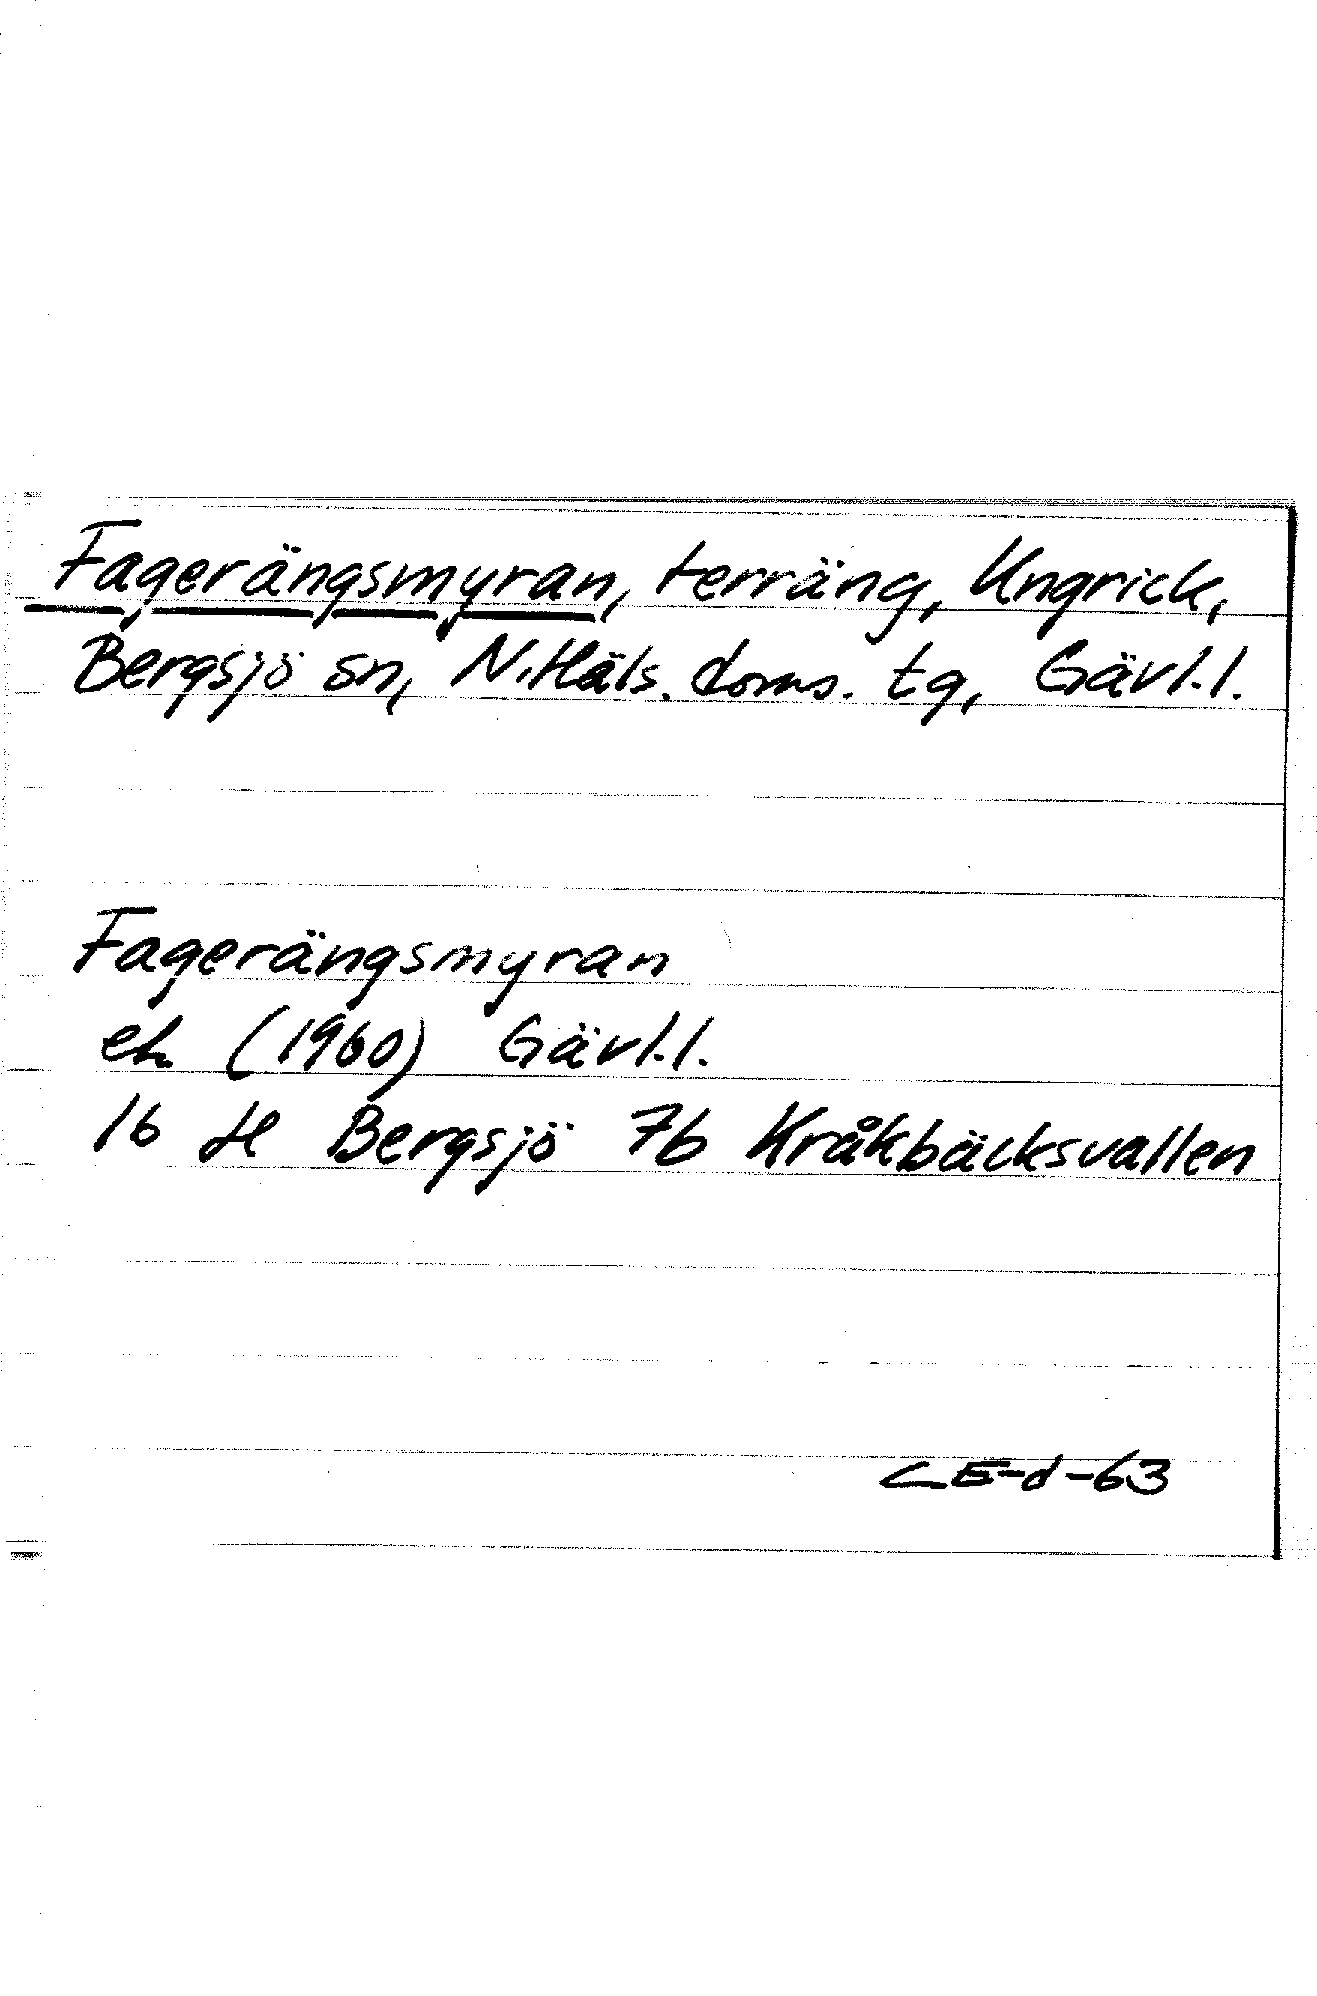 Fagerängsmyran, terräng, Ungrick,
Bergsjö sn, N.Häls. doms. tg, Gävl.l.
Fagerängsmyran
ek (1960) Gävl.l.
16 H Bergsjö 7b Kråkbäcksvallen
CE-d-63